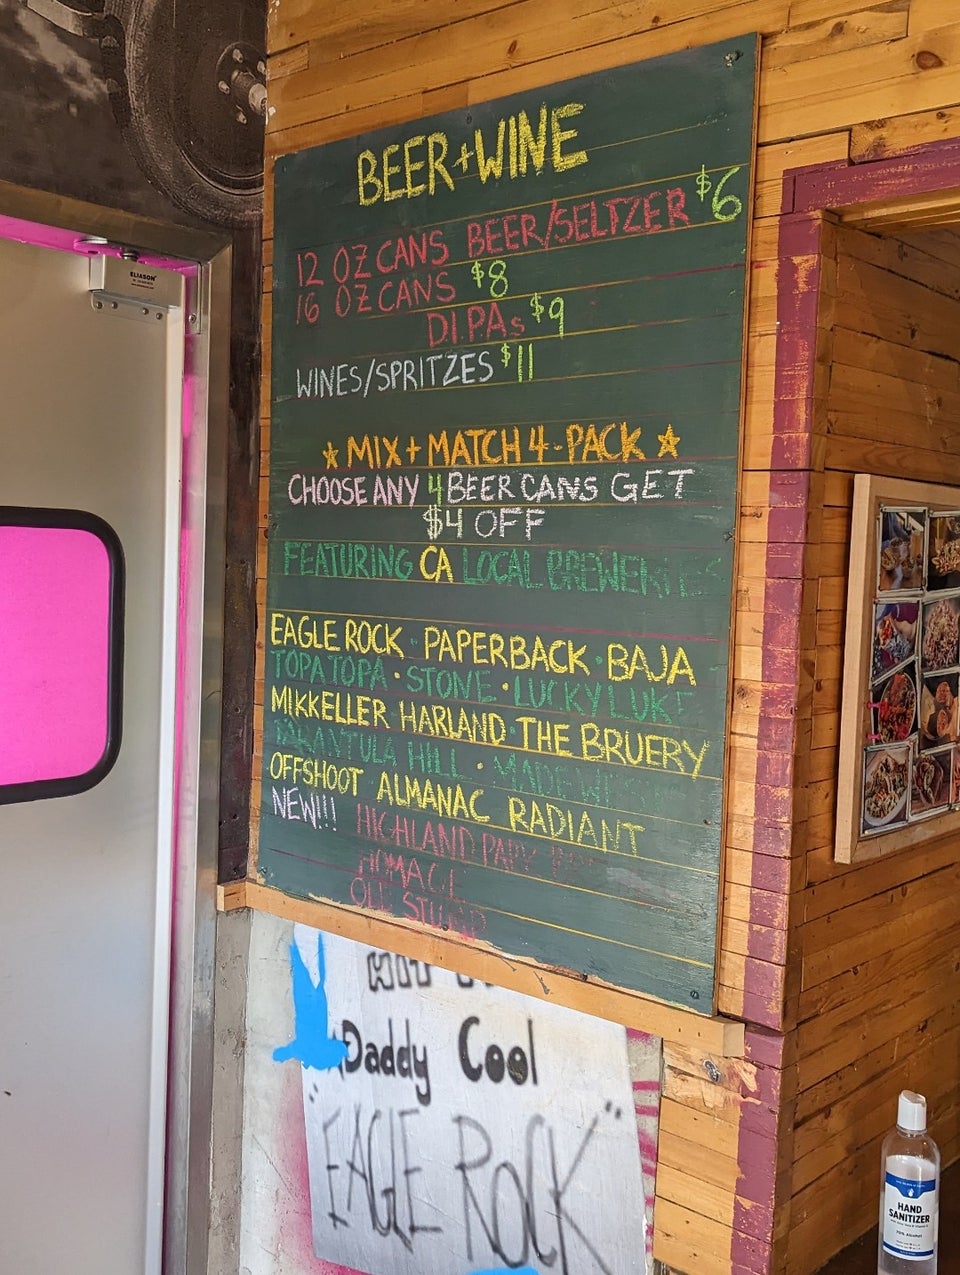 BEER+WINE
12 OZ CANS BEER/SELTZER $6
16 OZ CANS $8
D.I.PAs $9
WINES/SPRITZES $11
★ MIX + MATCH 4-PACK ★
CHOOSE ANY 4 BEER CANS GET
$4 OFF
FEATURING CA LOCAL BREWERIES
EAGLE ROCK · PAPERBACK · BAJA
TOPA TOPA · STONE · LUCKY LUKE
MIKKELLER HARLAND · THE BRUERY
TARANTULA HILL · MADEWEST
OFFSHOOT ALMANAC RADIANT
NEW!!! HIGHLAND PARK
HOMAGE
OLD STUMP
Daddy Cool
"EAGLE ROCK"
ELIASON
HAND
SANITIZER
70% Alcohol